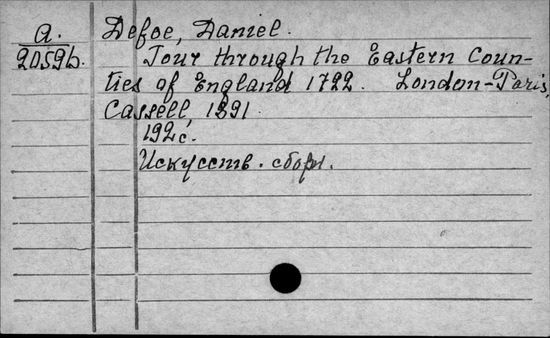 A.
20526.
Defoe, Daniel.
Tour through the Eastern Coun-
ties of England 1722. London-Paris,
Cassell, 1891.
192 с.
Искусств. сборн.